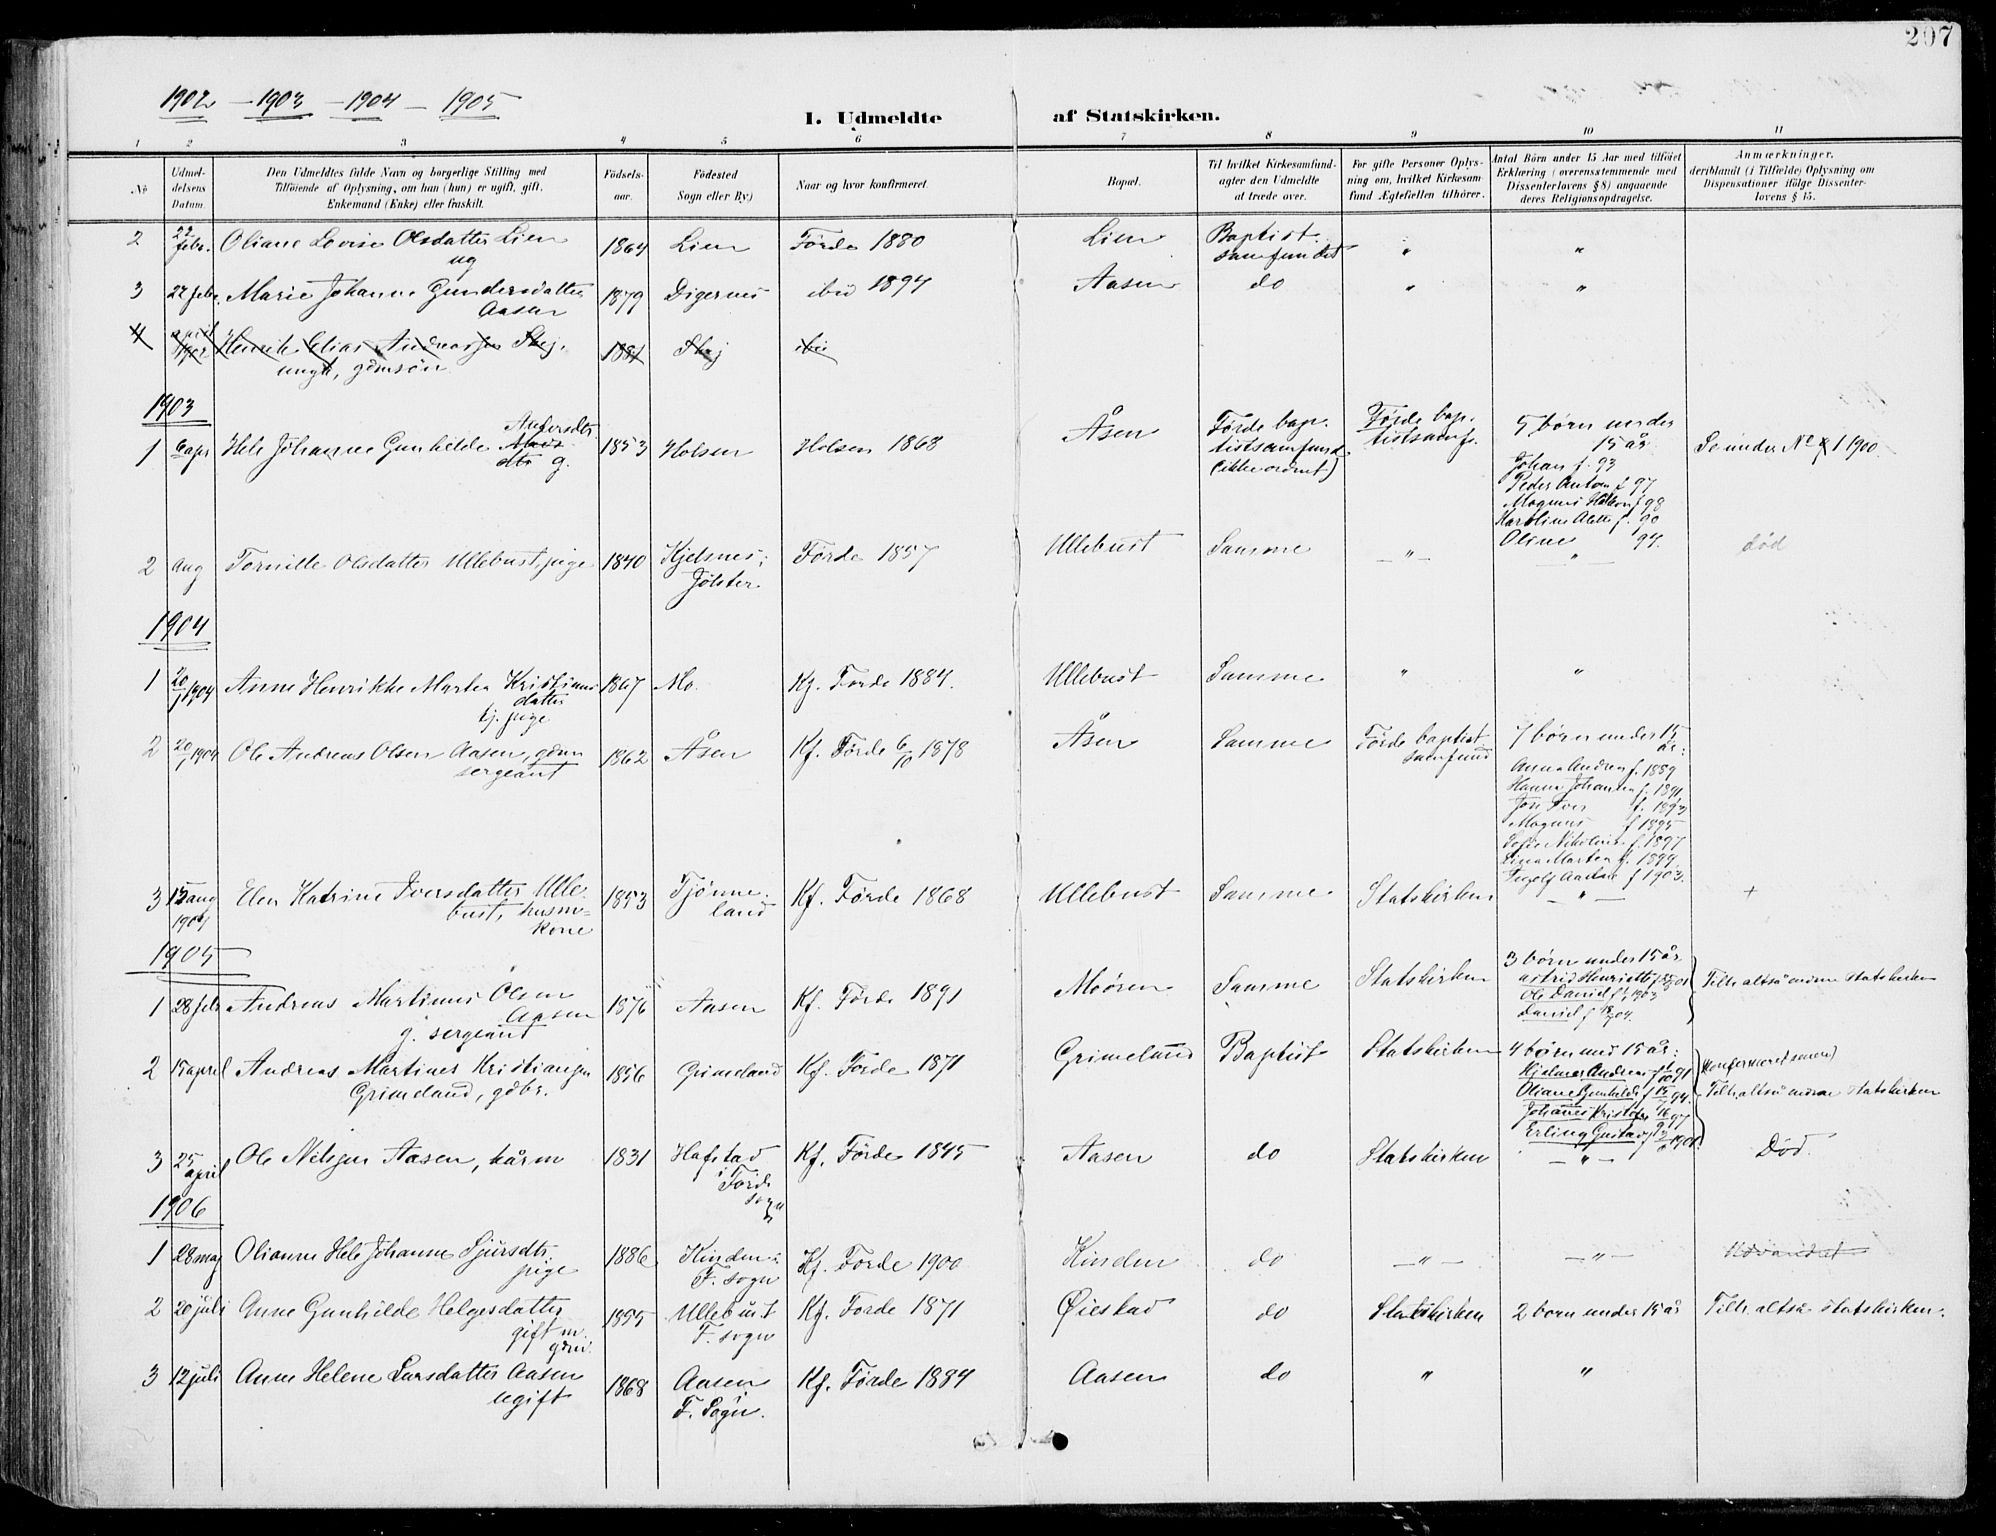 207
1902 - 1903 - 1904 - 1905
1. Udmeldte af Statskirken.
1 2 3 4 5 6 7 8 9 10 11
No
Udmeldelsens Datum.
Den Udmeldtes fulde Navn og borgerlige Stilling med
Tilføiende af Oplysning, om han (hun) er ugift, gift,
Enkemand (Enke) eller fraskilt.
Fødselsaar.
Fødested
Sogn eller By)
Naar og hvor konfirmeret.
Bopæl.
Til hvilket Kirkesamfund-
agter den Udmeldte
at træde over.
For gifte Personer Oplys-
ning om, hvilket Kirkesam-
fund Ægtefællen tilhører.
Antal Børn under 15 Aar med tilføiet
Erklæring (overensstemmende med
Dissenterlovens § 8) angaaende
deres Religionsopdragelse.
Anmærkninger,
deriblandt (i Tilfælde) Oplysning om
Dispensationer ifølge Dissenter-
lovens § 15.
2 22 febr. Oliane Lovise Olsdatter Lien 1864 Lien Førde 1880 Lien Baptist " "
ug samfundet
3 22 febr. Marie Johanne Gundersdatter 1879 Digernes ibid 1894 Aasen do " "
Aasen
4 april 1902 Henrik Elias Andreassen Skej. 1881 Skej ibid
ungk, gdmsøn
1903
1 6 apr Hele Johanne Gunhilde Andersdtr. 1853 Holsen Holsen 1868 Åsen Førde bap- Førde bap- 5 børn under
Mads- dtr g. tistsamfund tistsamf. 15 år Se under No 1 1900.
(ikke ordnet) Johan f. 93
Peder Anton f 97
Magnus Håkon f 98
Karoline Alette f. 90
Oline 94.
2 Aug Tornille Olsdatter Ullebust, pige 1840 Kjelsnes i Førde 1857 Ullebust Samme - " - - " - død
Jølster
1904
1 20/1 1904 Anne Henrikke Martha Kristians- 1867 Mo. Kf. Førde 1884. Ullebust Samme " "
datter
tj. pige
2 20/1 1904 Ole Andreas Olsen Aasen, gdm 1862 Åsen Kf. Førde 6/10 1878 Åsen Samme Førde baptist 7 børn under 15
sergeant samfund år:
Anna Andrea f. 1889
Hanna Johanna f. 1891
Jon Iver f. 1893
Magnus f 1895
Sofie Nikoline f. 1897
Lina Martea f. 1899
Ingolf Aasen f 1903.
3 15 aug 1904 Elen Katrine Iversdatter Ulle- 1853 Tjønne- Kf. Førde 1868 Ullebust Samme Statskirken - " - +
bust, husm- land
kone
1905
1 28 feb Andreas Martinus Olsen 1876 Aasen Kf. Førde 1891 Moören Samme Statskirken 3 børn under 15 år
Aasen Astrid Henriette f 01 Tilh. altså endnu statskirken
g. sergeant Ole Daniel f 1903
Daniel f 04.
2 15 april Andreas Martines Kristiansen 1856 Grimeland Kf. Førde 1871 Grimeland Baptist Statskirken 4 børn und 15 år:
Grimeland, gdbr. Hjelmer Andreas f 91
Oliane Gunhilde f 94.
Johannes Kristofer 97
Erling Gustav f 1901
Tilh. altså endnu statskirken
3 25 april Ole Nilsen Aasen, kårm 1831 Hafstad Kf. Førde 1845 Aasen do Statskirken - " - Død.
i Førde
sogn
1906
1 28 maj Olianne Hele Johanne Sjursdtr. 1886 Kinden i Kf. Førde 1900 Kinden do - " - - " - Udvandret
pige F. sogn
2 20 juli Anne Gunhilde Helgesdatter 1855 Ullebust Kf. Førde 1871 Øiestad do Statskirken 2 børn under 15 år Tilh. altså statskirken.
gift m. F. sogn
gdm.
3 12 juli Anne Helene Larsdatter Aasen 1868 Aasen Kf. Førde 1884 Aasen do " "
ugift F. Sogn.